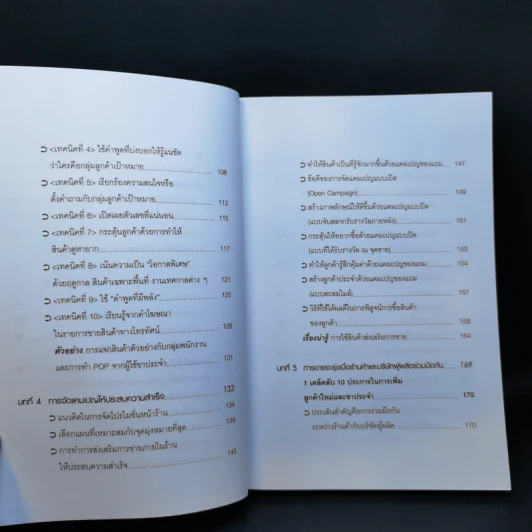 ➲ <เทคนิคที่ 4> ใช้คำพูดที่บ่งบอกให้รู้แน่ชัด
ว่าใครคือกลุ่มลูกค้าเป้าหมาย 108
➲ <เทคนิคที่ 5> เรียกร้องความสนใจหรือ
ตั้งคำถามกับกลุ่มลูกค้าเป้าหมาย 113
➲ <เทคนิคที่ 6> เปิดเผยตัวเลขที่แน่นอน 115
➲ <เทคนิคที่ 7> กระตุ้นลูกค้าด้วยการทำให้
สินค้าดูหายาก 117
➲ <เทคนิคที่ 8> เน้นความเป็น "โอกาสพิเศษ"
ด้วยฤดูกาล สินค้าเฉพาะพื้นที่ งานเทศกาลต่าง ๆ 121
➲ <เทคนิคที่ 9> ใช้ "คำพูดที่มีพลัง" 125
➲ <เทคนิคที่ 10> เรียนรู้จากคำโฆษณา
ในรายการขายสินค้าทางโทรทัศน์ 128
ตัวอย่าง การแจกสินค้าตัวอย่างกับกลุ่มพนักงาน
และการทำ POP จากผู้ใช้ขาประจำ 131
บทที่ 4 การจัดแคมเปญให้ประสบความสำเร็จ 133
➲ แนวคิดในการจัดโปรโมชั่นหน้าร้าน 134
➲ เลือกแผนที่เหมาะสมกับจุดมุ่งหมายที่สุด 139
➲ การทำการส่งเสริมการขายภายในร้าน
ให้ประสบความสำเร็จ 145
➲ ทำให้สินค้าเป็นที่รู้จักมากขึ้นด้วยแคมเปญของแถม 147
➲ ข้อดีของการจัดแคมเปญแบบเปิด
(Open Campaign) 149
➲ สร้างภาพลักษณ์ให้ดีขึ้นด้วยแคมเปญแบบปิด
(แบบจับสลากรับรางวัลภายหลัง) 151
➲ กระตุ้นให้อยากซื้อด้วยแคมเปญแบบปิด
(แบบที่ได้รับรางวัล ณ จุดขาย) 153
➲ ทำให้ลูกค้ารู้สึกคุ้มค่าด้วยแคมเปญของแถม 154
➲ สร้างลูกค้าประจำด้วยแคมเปญของแถม
(แบบสะสมไมล์) 157
➲ วิธีที่ใช้ได้ผลดีในการพิสูจน์การซื้อสินค้า
ของลูกค้า 159
เรื่องน่ารู้ การใช้สินค้าส่งเสริมการขาย 164
บทที่ 5 การขายจะรุ่งเมื่อร้านค้าและบริษัทผู้ผลิตร่วมมือกัน 169
1 เคล็ดลับ 10 ประการในการเพิ่ม
ลูกค้าใหม่และขาประจำ 170
➲ ประเด็นสำคัญคือการร่วมมือกัน
ระหว่างร้านค้ากับบริษัทผู้ผลิต 170